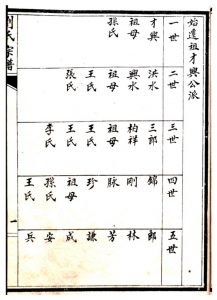 始遷祖才興公派
一世 二世 三世 四世 五世
才興 洪水 三郎 錦 郎
祖母 興水 柏祥 剛 林
孫氏 祖母 祖母 脉 芳
王氏 王氏 珍 謙
張氏 王氏 祖母 成
李氏 孫氏 安
王氏 兵
劉氏宗譜 一